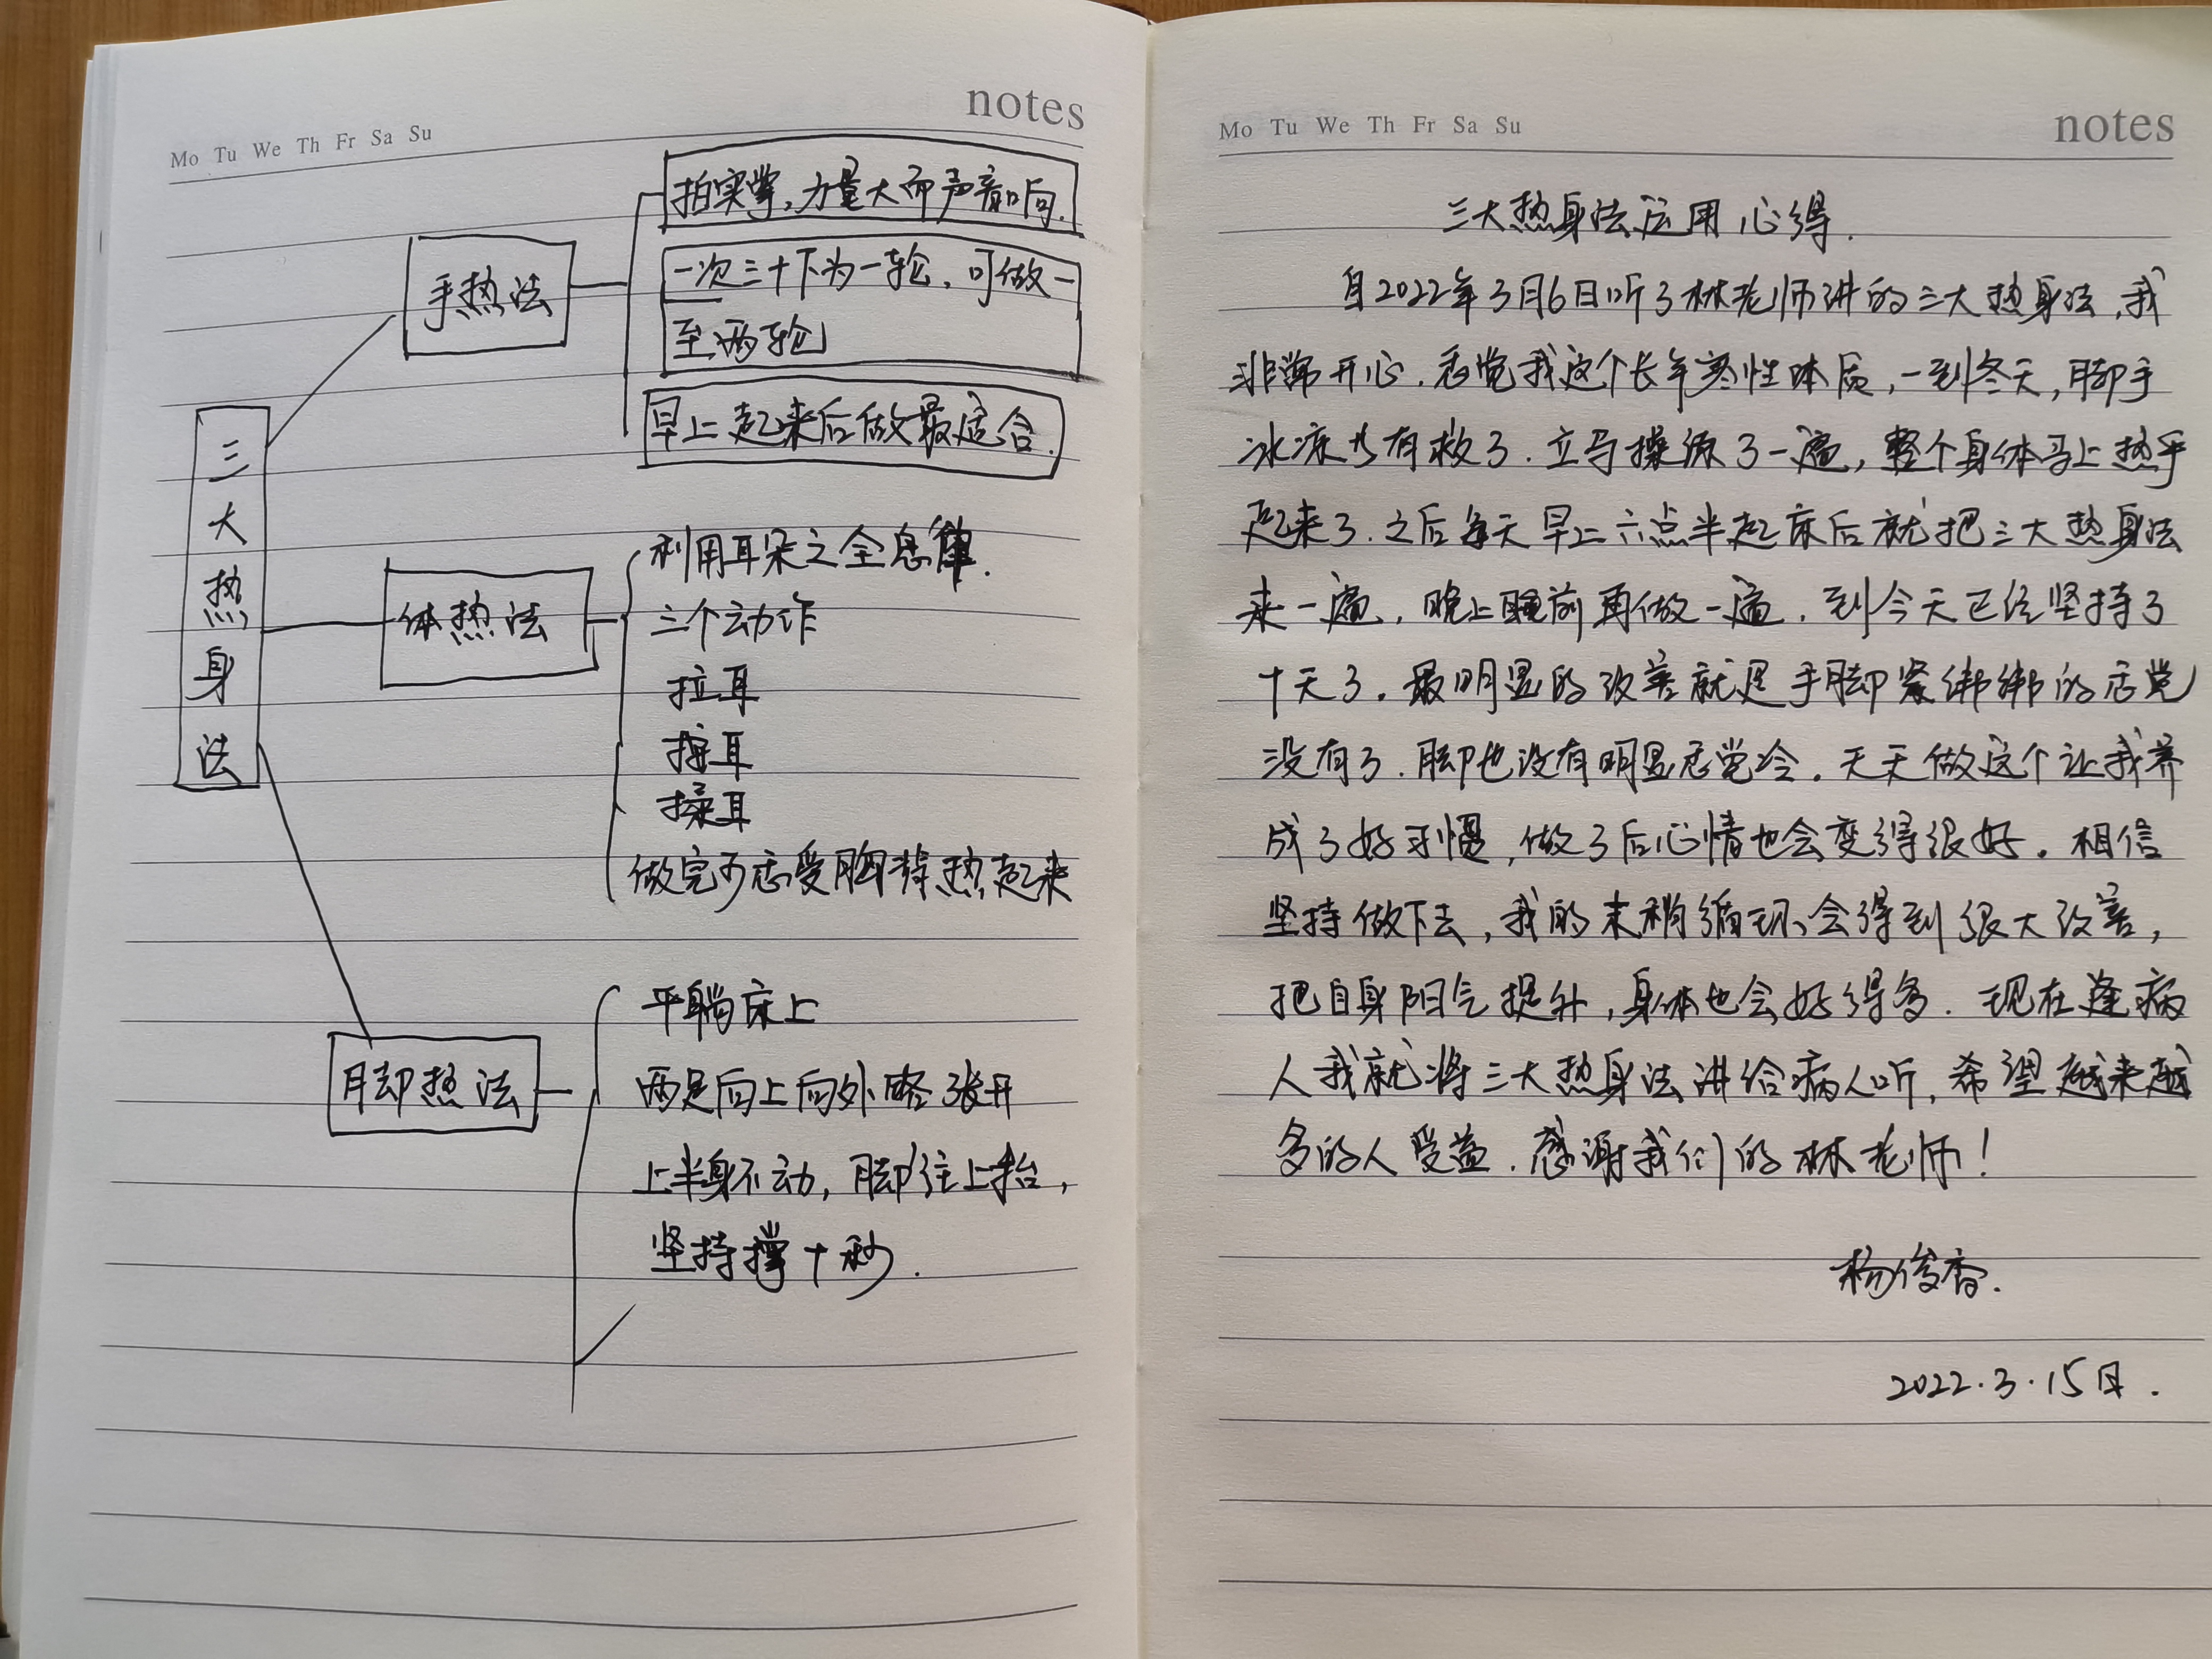 notes
Mo Tu We Th Fr Sa Su
三大热身法
手热法
拍实掌,力量大而声音响.
一次三十下为一轮,可做一
至两轮
早上起来后做最适合.
体热法
利用耳朵之全息律.
三个动作
拉耳
按耳
揉耳
做完可感受胸背热起来
脚热法
平躺床上
两足向上向外略张开
上半身不动,脚往上抬,
坚持撑十秒.
notes
Mo Tu We Th Fr Sa Su
三大热身法应用心得.
自2022年3月6日听了林老师讲的三大热身法,我
非常开心.感觉我这个长年寒性体质,一到冬天,脚手
冰凉为有救了.立马操练了一遍,整个身体马上热乎
起来了.之后每天早上六点半起床后就把三大热身法
来一遍,晚上睡前再做一遍.到今天已经坚持了
十天了.最明显的改善就是手脚紧绑绑的感觉
没有了.脚也没有明显感觉冷.天天做这个让我养
成了好习惯,做了后心情也会变得很好.相信
坚持做下去,我的末稍循环会得到很大改善,
把自身阳气提升,身体也会好得多.现在逢病
人我就将三大热身法讲给病人听,希望越来越
多的人受益.感谢我们的林老师!
杨俊香.
2022.3.15日.